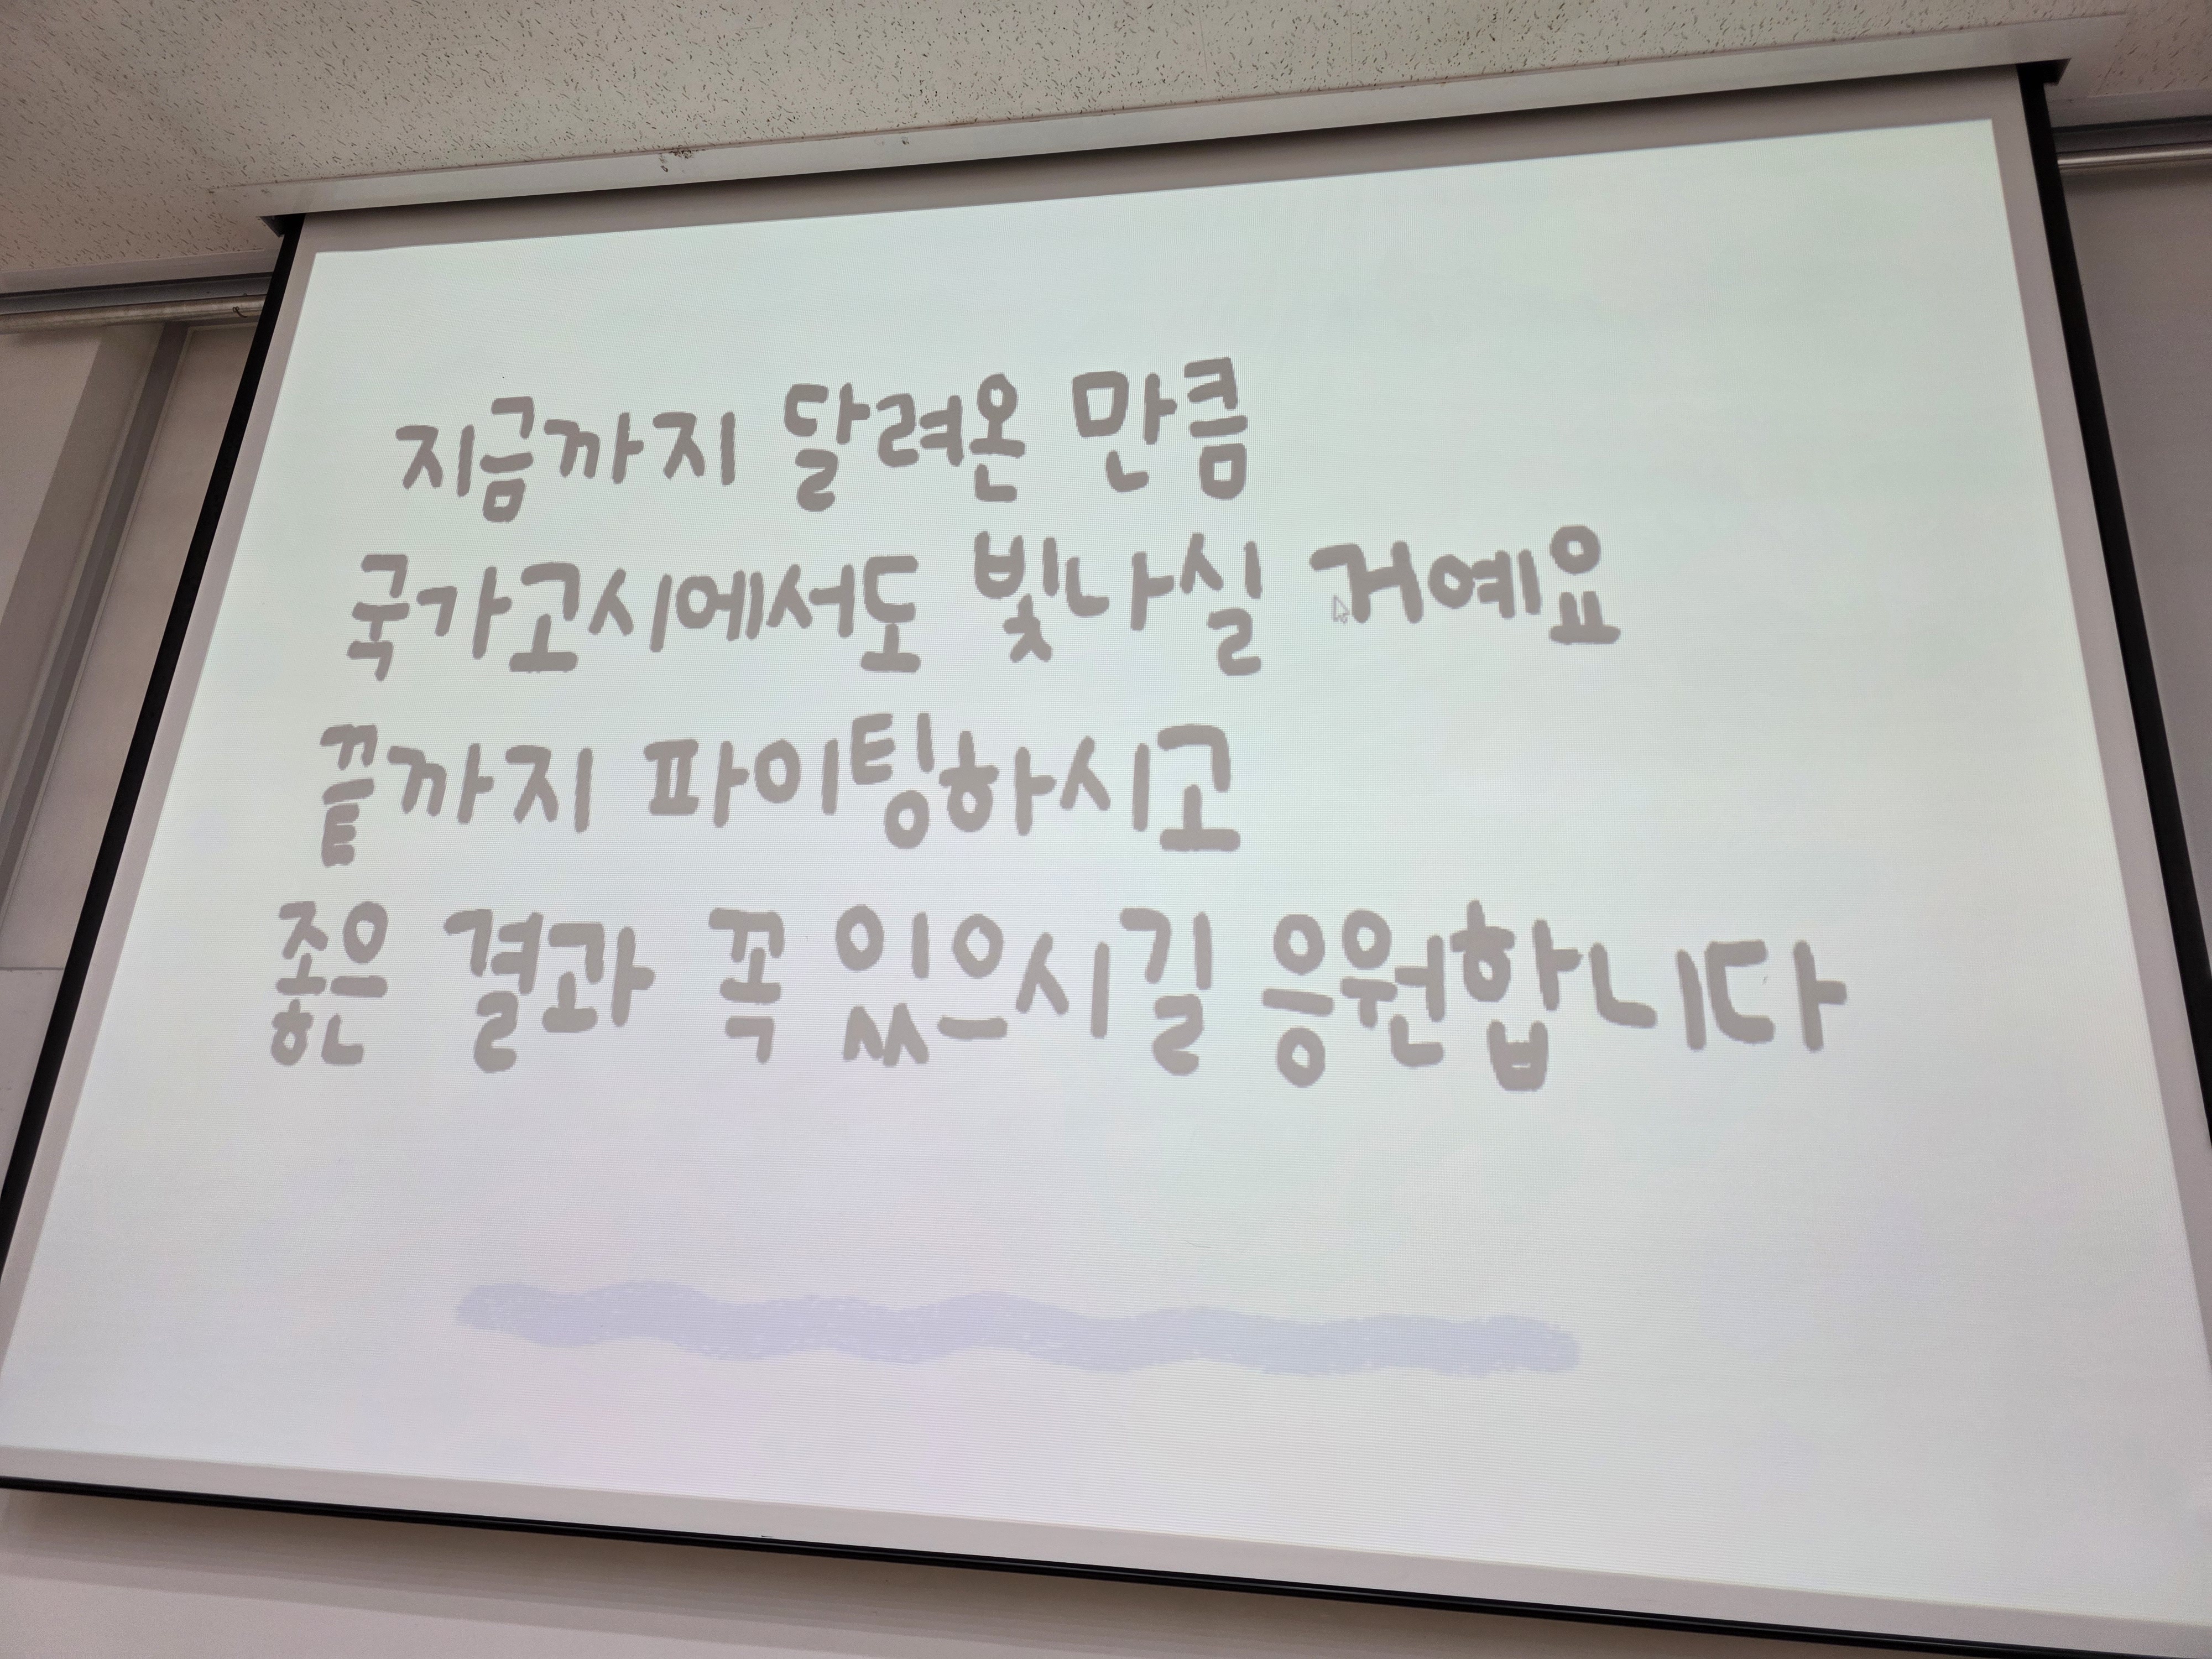 지금까지 달려온 만큼
국가고시에서도 빛나실 거예요
끝까지 파이팅하시고
좋은 결과 꼭 있으시길 응원합니다